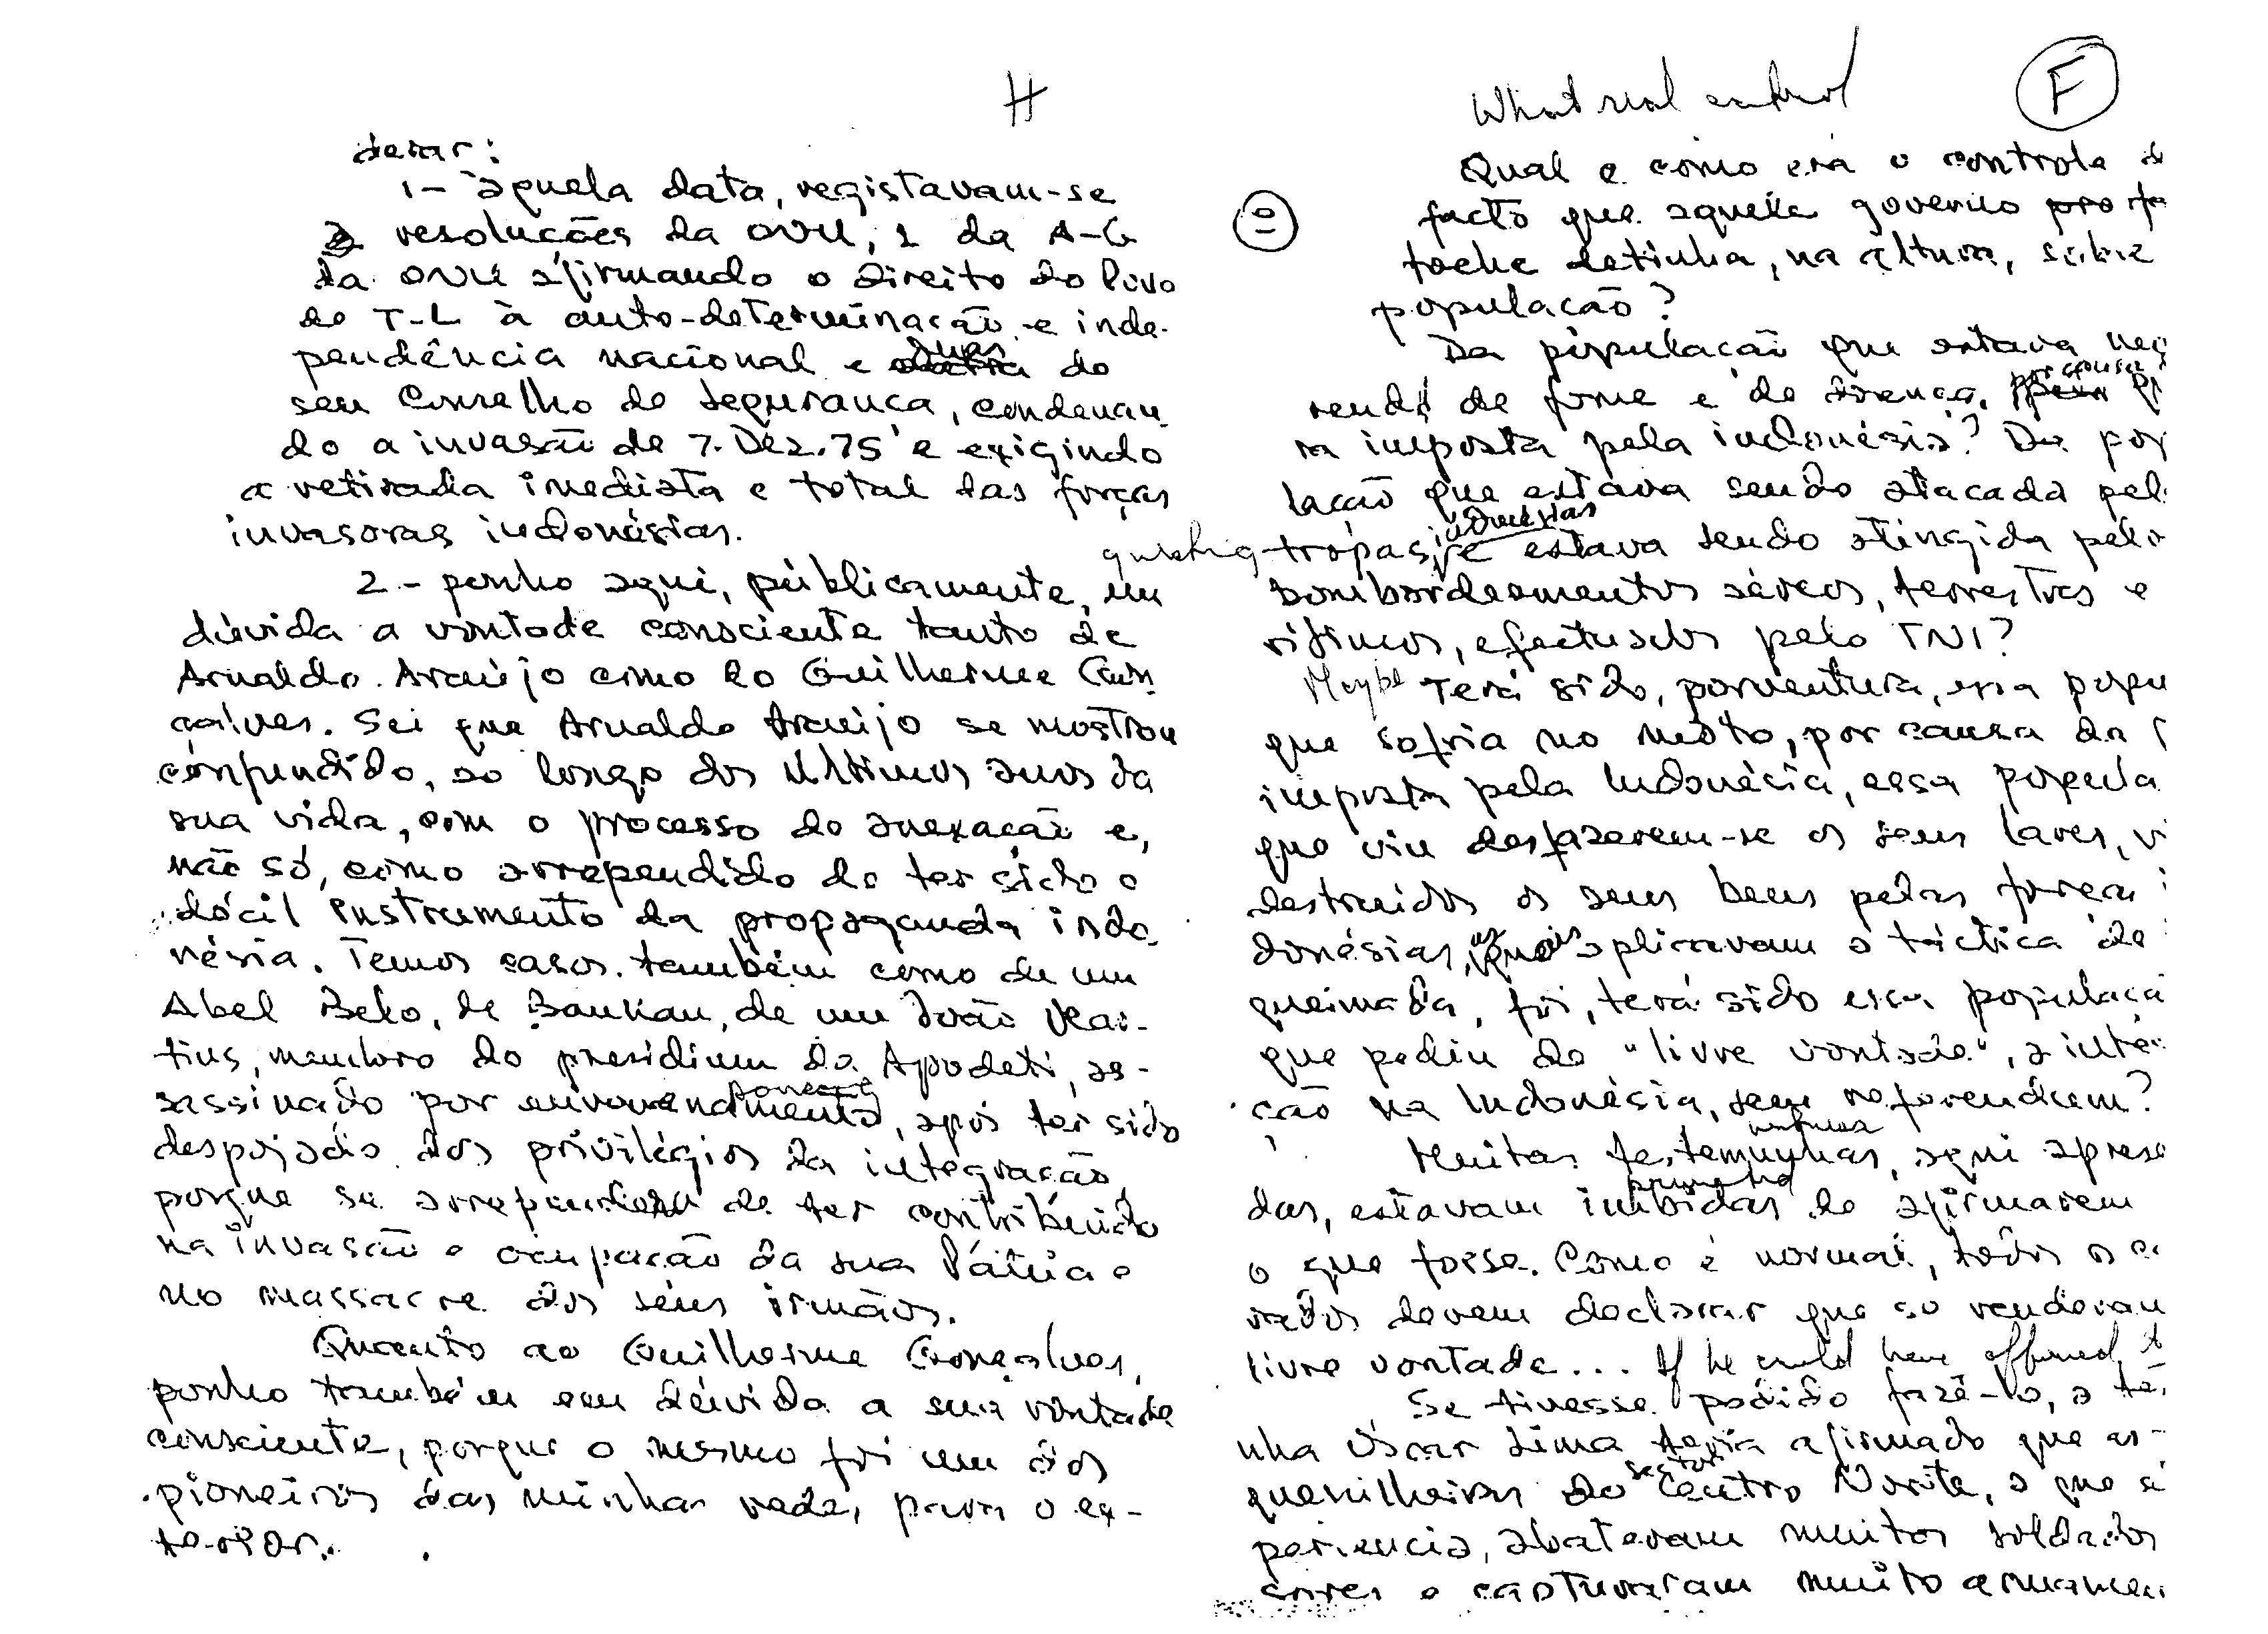 H
deixar:
1- àquela data, registavam-se
3 resoluções da ONU, 1 da A-G
da ONU afirmando o direito do Povo
de T-L à auto-determinação e inde-
pendência nacional e duas do
seu Conselho de Segurança, condenan-
do a invasão de 7.Dez.75 e exigindo
a retirada imediata e total das forças
invasoras indonésias.
2 - ponho aqui, públicamente, em
dúvida a vontade consciente tanto de
Arnaldo Araújo como do Guilherme Gon
çalves. Sei que Arnaldo Araújo se mostrou
confundido, ao longo dos últimos anos da
sua vida, com o processo de anexação e,
não só, como arrependido de ter sido o
dócil instrumento da propaganda indo-
nésia. Temos casos também como de um
Abel Belo, de Baukau, de um João Mar-
tins, membro do presidium da Apodeti, as-
sassinado por envenenamento, após ter sido
despojado dos privilégios da integração
porque se arrependeu de ter contribuído
na invasão e ocupação da sua Pátria e
no massacre dos seus irmãos.
Quanto ao Guilherme Gonçalves,
ponho também em dúvida a sua vontade
consciente, porque o mesmo foi um dos
pioneiros das minhas redes, para o ex-
terior.
What real control
F
Qual e como era o controle d
facto que aquele governo pro fa
toche detinha, na altura, sobre
população?
Da população que estava
rendo de fome e de doença, por causa
ra imposta pela indonésia? Da pop
lação que estava sendo atacada pel
tropas indonésias, e estava sendo atingida pelo
bombardeamentos aéreos, terrestres e
rítimos, efectuados pelo TNI?
Maybe Terá sido, porventura, essa popu
que sofria no mato, por causa da
imposta pela Indonésia, essa popula
que viu desfazerem-se os seus lares, vi
destruidos os seus bens pelas forças i
donésias, as quais aplicavam a táctica de
queimada, foi, terá sido essa populaçã
que pediu de "livre vontade", a inte
ção na Indonésia, sem referendum?
Muitas testemunhas, aqui aprese
das, estavam inibidas de afirmarem
o que fosse. Como é normal, todos os
rados devem declarar que se renderam
livre vontade... If he could have affirmed
Se tivesse podido fazê-lo, a te
nha Óscar Lima teria afirmado que as
guerrilheiros do sector Centro Norte, a que
pertencia, abateram muitos soldados
sores e capturaram muito armamen